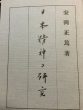 安岡正篤著
日本精神の研究